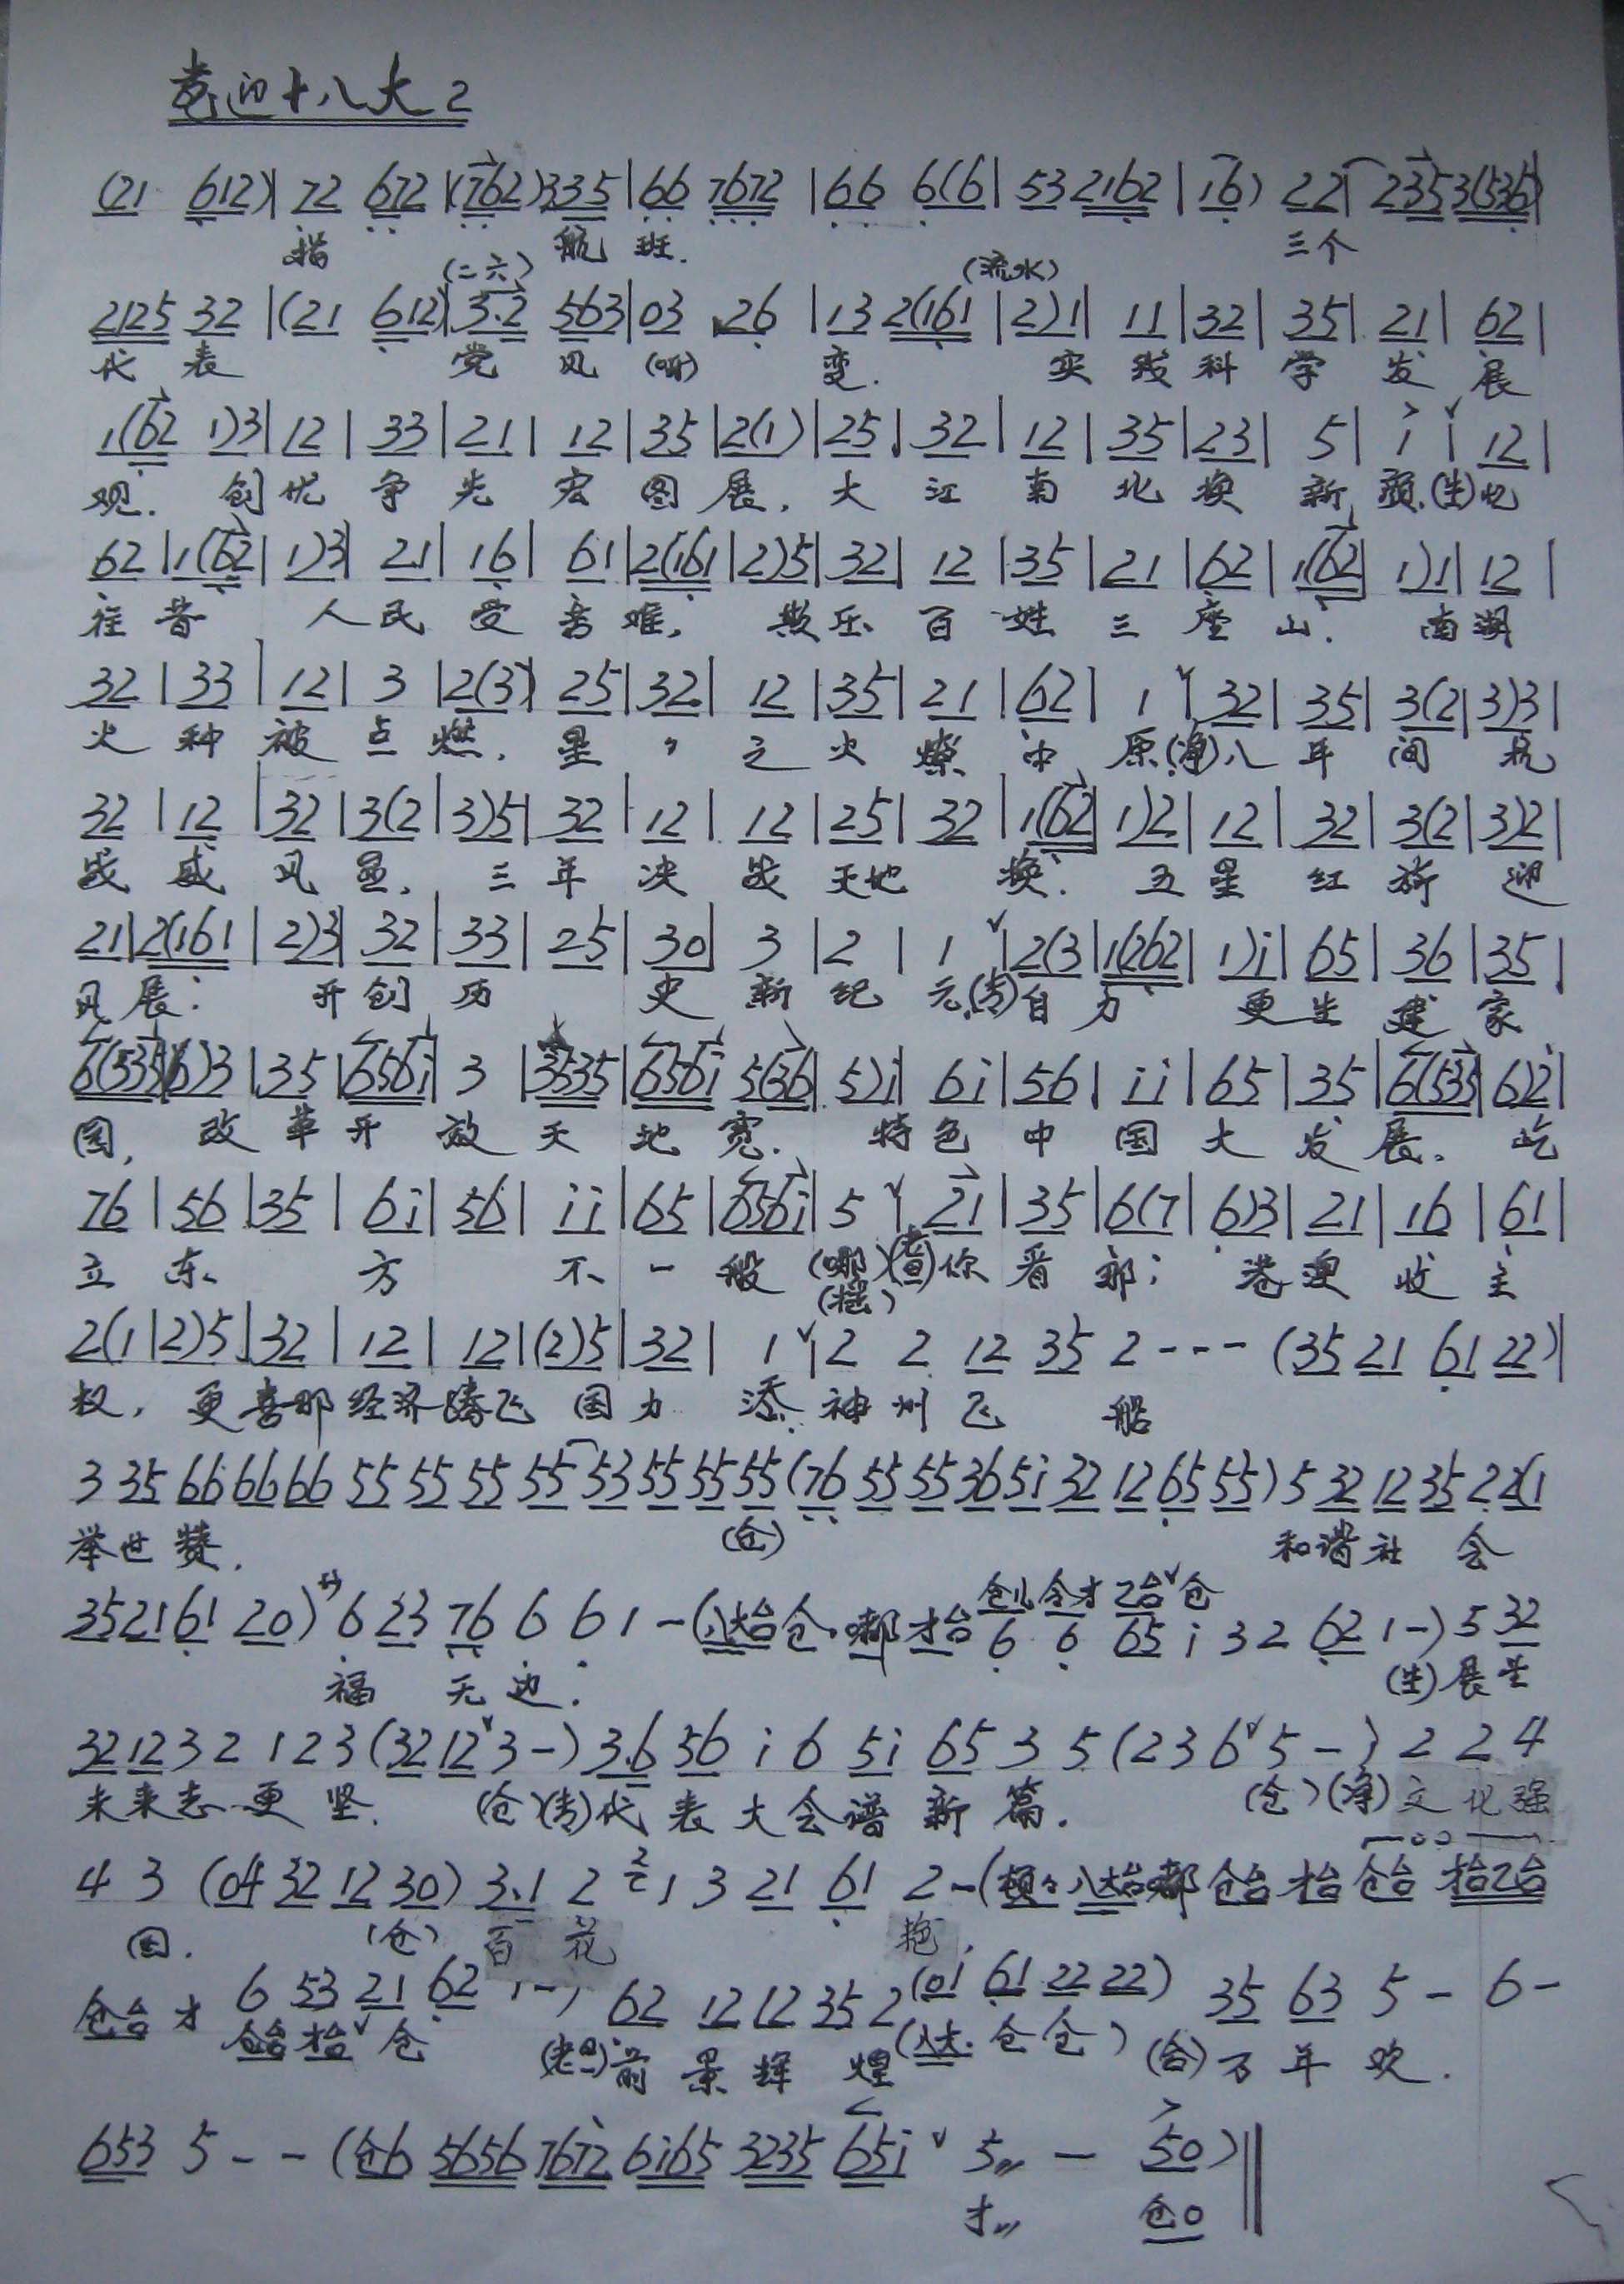 喜迎十八大2
(21 612)|72 672|(762)335|66 7672|66 6(6|53 2162|16) 22|235 3(536)|
指 航 班. 三个
(二六) (流水)
2125 32|(21 612)|3·2 563|03 26|13 2(161|2)1|11|32|35|21|62|
代 表 党 风 (啊) 变. 实 践 科 学 发 展
1(62 1)3|12|33|21|12|35|2(1)|25|32|12|35|23|5|i|i|12|
观. 创 优 争 先 宏 图 展, 大 江 南 北 换 新 颜.(生)忆
62|1(62|1)3|21|16|61|2(161|2)5|32|12|35|21|62|1(62|1)1|12|
往 昔 人 民 受 苦 难, 欺 压 百 姓 三 座 山. 南 湖
32|33|12|3|2(3)|25|32|12|35|21|62|1|32|35|3(2|3)3|
火 种 被 点 燃, 星 之 火 燎 中 原.(净)八 年 间 抗
32|12|32|3(2|3)5|32|12|12|25|32|1(62|1)2|12|32|3(2|3)2|
战 威 风 显, 三 年 决 战 天 地 换. 五 星 红 旗 迎
21|2(161|2)3|32|33|25|30|3|2|1|2(3|1(262|1)i|65|36|35|
风 展: 开 创 历 史 新 纪 元.(旁)自 力 更 生 建 家
6(535|6)3|35|656i|3|3535|656i|5(36|5)i|6i|56|ii|65|35|6(535|6)2|
园, 改 革 开 放 天 地 宽. 特 色 中 国 大 发 展. 屹
76|56|35|6i|56|ii|65|656i|5|21|35|6(7|6)3|21|16|61|
立 东 方 不 一 般 (哪) 你 看 那: 港 澳 收 主
(摇)
2(1|2)5|32|12|12|(2)5|32|1|2 2 12 35 2---(35 21 61 22)|
权, 更 喜 那 经 济 腾 飞 国 力 添. 神 州 飞 船
3 35 66 66 66 55 55 55 55 53 55 55 55 (76 55 55 36 5i 32 12 65 55) 5 32 12 35 2 2(1
举 世 赞. (仓) 和 谐 社 会
仓 令才 乙台 仓
35 21 61 20) 6 23 76 6 6 1 -(八大台 仓 嘟 才台 6 6 65 i 3 2 62 1 -) 5 32
福 无 边. (生) 展 望
32 12 3 2 1 2 3 (32 12 3 -) 3.6 56 i 6 5i 65 3 5 (2 3 6 5 -) 2 2 4
未 来 志 更 坚. (仓)(旁)代 表 大 会 谱 新 篇. (仓)(净) 文 化 强
4 3 (04 32 12 30) 3.1 2 1 3 21 61 2 -( 八大台 嘟 仓台 才台 仓台 才台乙台
国. (仓) 百 花 艳.
仓台 才 6 53 21 62 1 -) 62 12 12 35 2 (01 61 22 22) 35 63 5 - 6 -
仓台 才台 仓 前 景 辉 煌 (八大. 仓 仓) (合) 万 年 欢.
653 5 - - (仓6 5656 7672 6i65 3235 65i 5 - 50)
才 仓0